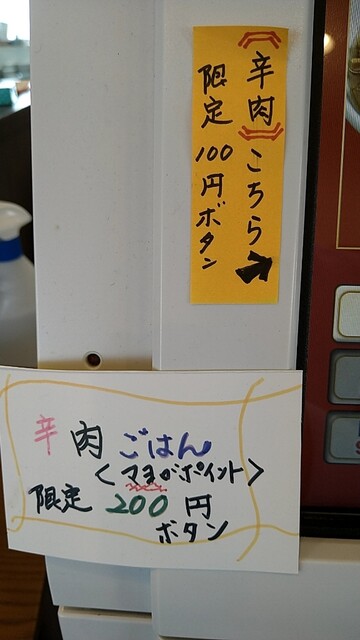 【辛肉】こちら➔
限定100円ボタン
辛肉ごはん
<マヨがポイント>
限定200円
ボタン